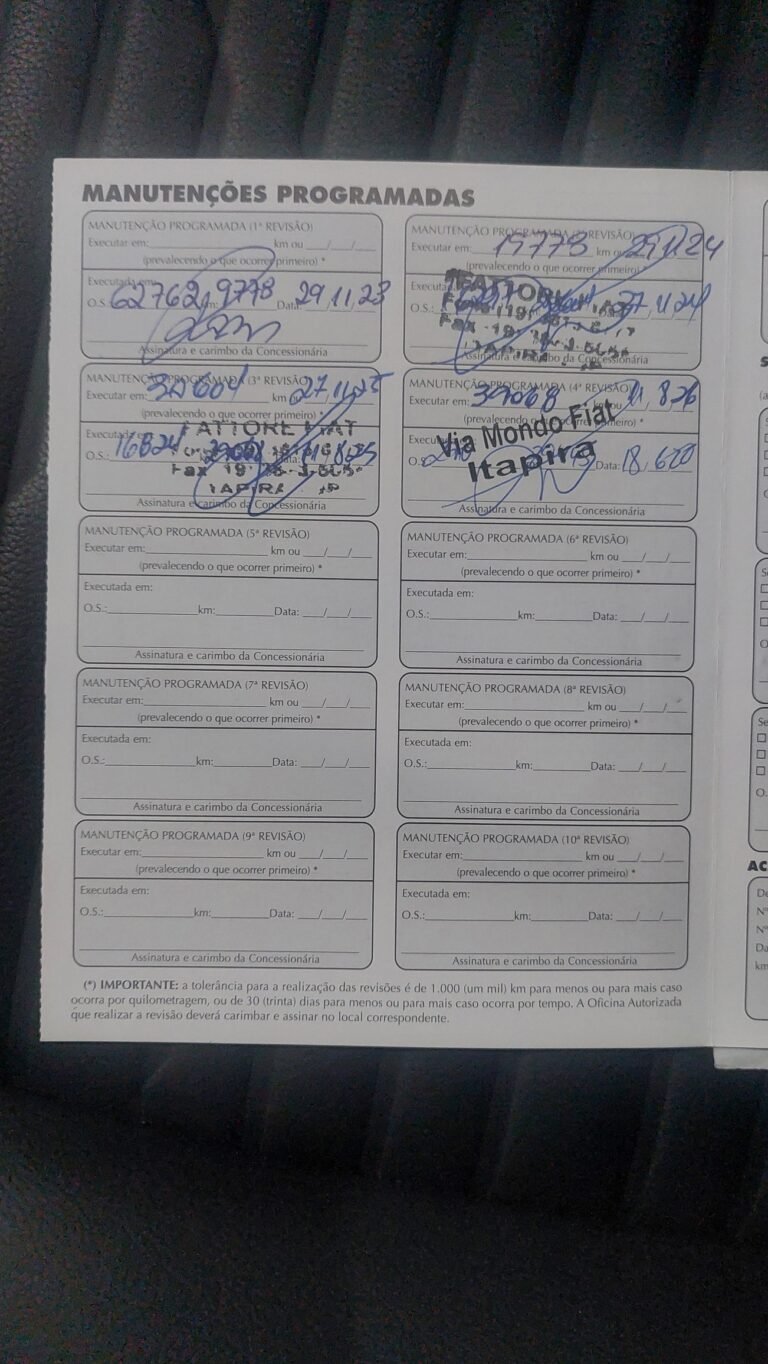 MANUTENÇÕES PROGRAMADAS
MANUTENÇÃO PROGRAMADA (1ª REVISÃO)
Executar em: km ou / /
(prevalecendo o que ocorrer primeiro) *
Executada em:
O.S.: 62762 km: 9778 Data: 29,11,23
Assinatura e carimbo da Concessionária
MANUTENÇÃO PROGRAMADA REVISÃO)
Executar em: 19778 km ou 29,11,24
(prevalecendo o que ocorrer primeiro) *
FATTORE FIAT
O.S.: Data: 27,11,24
ITAPIRA - SP
Assinatura e carimbo da Concessionária
MANUTENÇÃO PROGRAMADA (3ª REVISÃO)
Executar em: km ou 27,11,25
(prevalecendo o que ocorrer primeiro) *
Executada em:
FATTORE FIAT
O.S.: Data:
ITAPIRA SP
Assinatura e carimbo da Concessionária
MANUTENÇÃO PROGRAMADA (4ª REVISÃO)
Executar em: 39068 km ou
(prevalecendo o que ocorrer primeiro) *
Via Mondo Fiat
Itapira
O.S.: Data:
Assinatura e carimbo da Concessionária
MANUTENÇÃO PROGRAMADA (5ª REVISÃO)
Executar em: km ou / /
(prevalecendo o que ocorrer primeiro) *
Executada em:
O.S.: km: Data: / /
Assinatura e carimbo da Concessionária
MANUTENÇÃO PROGRAMADA (6ª REVISÃO)
Executar em: km ou / /
(prevalecendo o que ocorrer primeiro) *
Executada em:
O.S.: km: Data: / /
Assinatura e carimbo da Concessionária
MANUTENÇÃO PROGRAMADA (7ª REVISÃO)
Executar em: km ou / /
(prevalecendo o que ocorrer primeiro) *
Executada em:
O.S.: km: Data: / /
Assinatura e carimbo da Concessionária
MANUTENÇÃO PROGRAMADA (8ª REVISÃO)
Executar em: km ou / /
(prevalecendo o que ocorrer primeiro) *
Executada em:
O.S.: km: Data: / /
Assinatura e carimbo da Concessionária
MANUTENÇÃO PROGRAMADA (9ª REVISÃO)
Executar em: km ou / /
(prevalecendo o que ocorrer primeiro) *
Executada em:
O.S.: km: Data: / /
Assinatura e carimbo da Concessionária
MANUTENÇÃO PROGRAMADA (10ª REVISÃO)
Executar em: km ou / /
(prevalecendo o que ocorrer primeiro) *
Executada em:
O.S.: km: Data: / /
Assinatura e carimbo da Concessionária
(*) IMPORTANTE: a tolerância para a realização das revisões é de 1.000 (um mil) km para menos ou para mais caso
ocorra por quilometragem, ou de 30 (trinta) dias para menos ou para mais caso ocorra por tempo. A Oficina Autorizada
que realizar a revisão deverá carimbar e assinar no local correspondente.